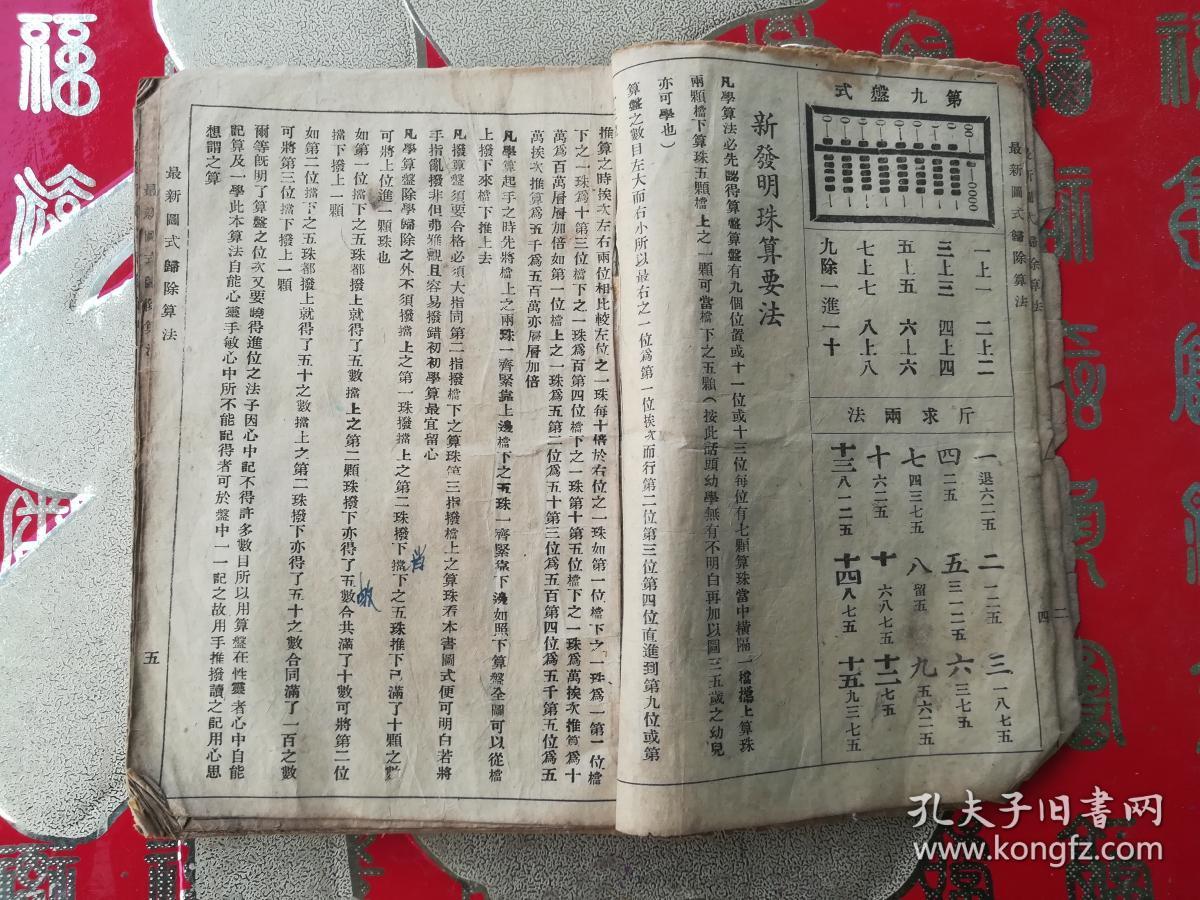 第九盤式
一上一　二上二
三上三　四上四
五上五　六上六
七上七　八上八
九除一進一十
斤求兩法
一退六二五　二一二五　三一八七五
四二五　五三一二五　六三七五
七四三七五　八留五　九五六二五
十六二五　十一六八七五　十二七五
十三八一二五　十四八七五　十五九三七五
最新圖式歸除算法
四
新發明珠算要法
凡學算法必先認得算盤算盤有九個位置或十一位或十三位每位有七顆算珠當中橫隔一檔檔上算珠
兩顆檔下算珠五顆檔上之一顆可當檔下之五顆（按此話頭幼學無有不明白再加以圖三五歲之幼兒
亦可學也）
算盤之數目左大而右小所以最右之一位為第一位挨次而行第二位第三位第四位直進到第九位或第
推算之時挨次左右兩位相比較左位之一珠每十倍於右位之一珠如第一位檔下之一珠為一第一位檔
下之一珠為十第三位檔下之一珠為百第四位檔下之一珠第十第五位檔下之一珠為萬挨次推算為十
萬為百萬層層加倍如第一位檔上之一珠為五第二位為五十第三位為五百第四位為五千第五位為五
萬挨次推算為五千為五百萬亦層層加倍
凡學算起手之時先將檔上之兩珠一齊緊靠上邊檔下之五珠一齊緊靠下邊如照下算盤全圖可以從檔
上撥下來檔下推上去
凡撥算盤須要合格必須大指同第二指撥檔下之算珠第三指撥檔上之算珠看本書圖式便可明白若將
手指亂撥非但弗雅觀且容易撥錯初初學算最宜留心
凡學算盤除學歸除之外不須撥擋上之第一珠撥擋上之第二珠撥下擋下之五珠推下已滿了十顆之數
可將上位進一顆珠也
如第一位擋下之五珠都撥上就得了五數擋上之第二顆珠撥下亦得了五數合共滿了十數可將第二位
擋下撥上一顆
如第二位擋下之五珠都撥上就得了五十之數擋上之第二珠撥下亦得了五十之數合同滿了一百之數
可將第三位擋下撥上一顆
爾等既明了算盤之位次又要曉得進位之法子因心中記不得許多數目所以用算盤在性靈者心中自能
記算及一學此本算法自能心靈手敏心中所不能記得者可於盤中一一記之故用手推撥讀之記用心思
想謂之算
最新圖式歸除算法
五
孔夫子旧书网
www.kongfz.com